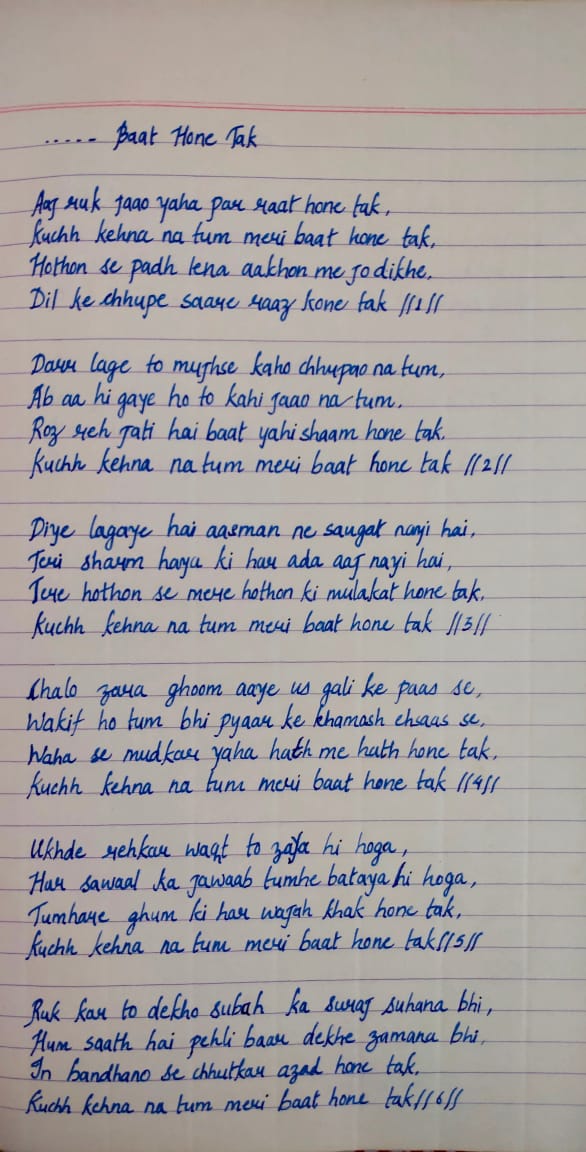 ..... Baat Hone Tak
Aaj ruk jaao yaha par raat hone tak,
Kuchh kehna na tum meri baat hone tak,
Hothon se padh lena aakhon me jo dikhe,
Dil ke chhupe saare raaz kone tak //1//
Darr lage to mujhse kaho chhupao na tum,
Ab aa hi gaye ho to kahi jaao na tum,
Roz reh jati hai baat yahi shaam hone tak,
Kuchh kehna na tum meri baat hone tak //2//
Diye lagaye hai aasman ne saugat nayi hai,
Teri sharm haya ki har ada aaj nayi hai,
Tere hothon se mere hothon ki mulakat hone tak,
Kuchh kehna na tum meri baat hone tak //3//
Chalo zara ghoom aaye us gali ke paas se,
Wakif ho tum bhi pyaar ke khamosh ehsaas se,
Waha se mudkar yaha hath me hath hone tak,
Kuchh kehna na tum meri baat hone tak //4//
Ukhde rehkar waqt to zaya hi hoga,
Har sawaal ka jawaab tumhe bataya hi hoga,
Tumhare ghum ki har wajah khak hone tak,
Kuchh kehna na tum meri baat hone tak //5//
Ruk kar to dekho subah ka suraj suhana bhi,
Hum saath hai pehli baar dekhe zamana bhi,
In bandhano se chhutkar azad hone tak,
Kuchh kehna na tum meri baat hone tak //6//